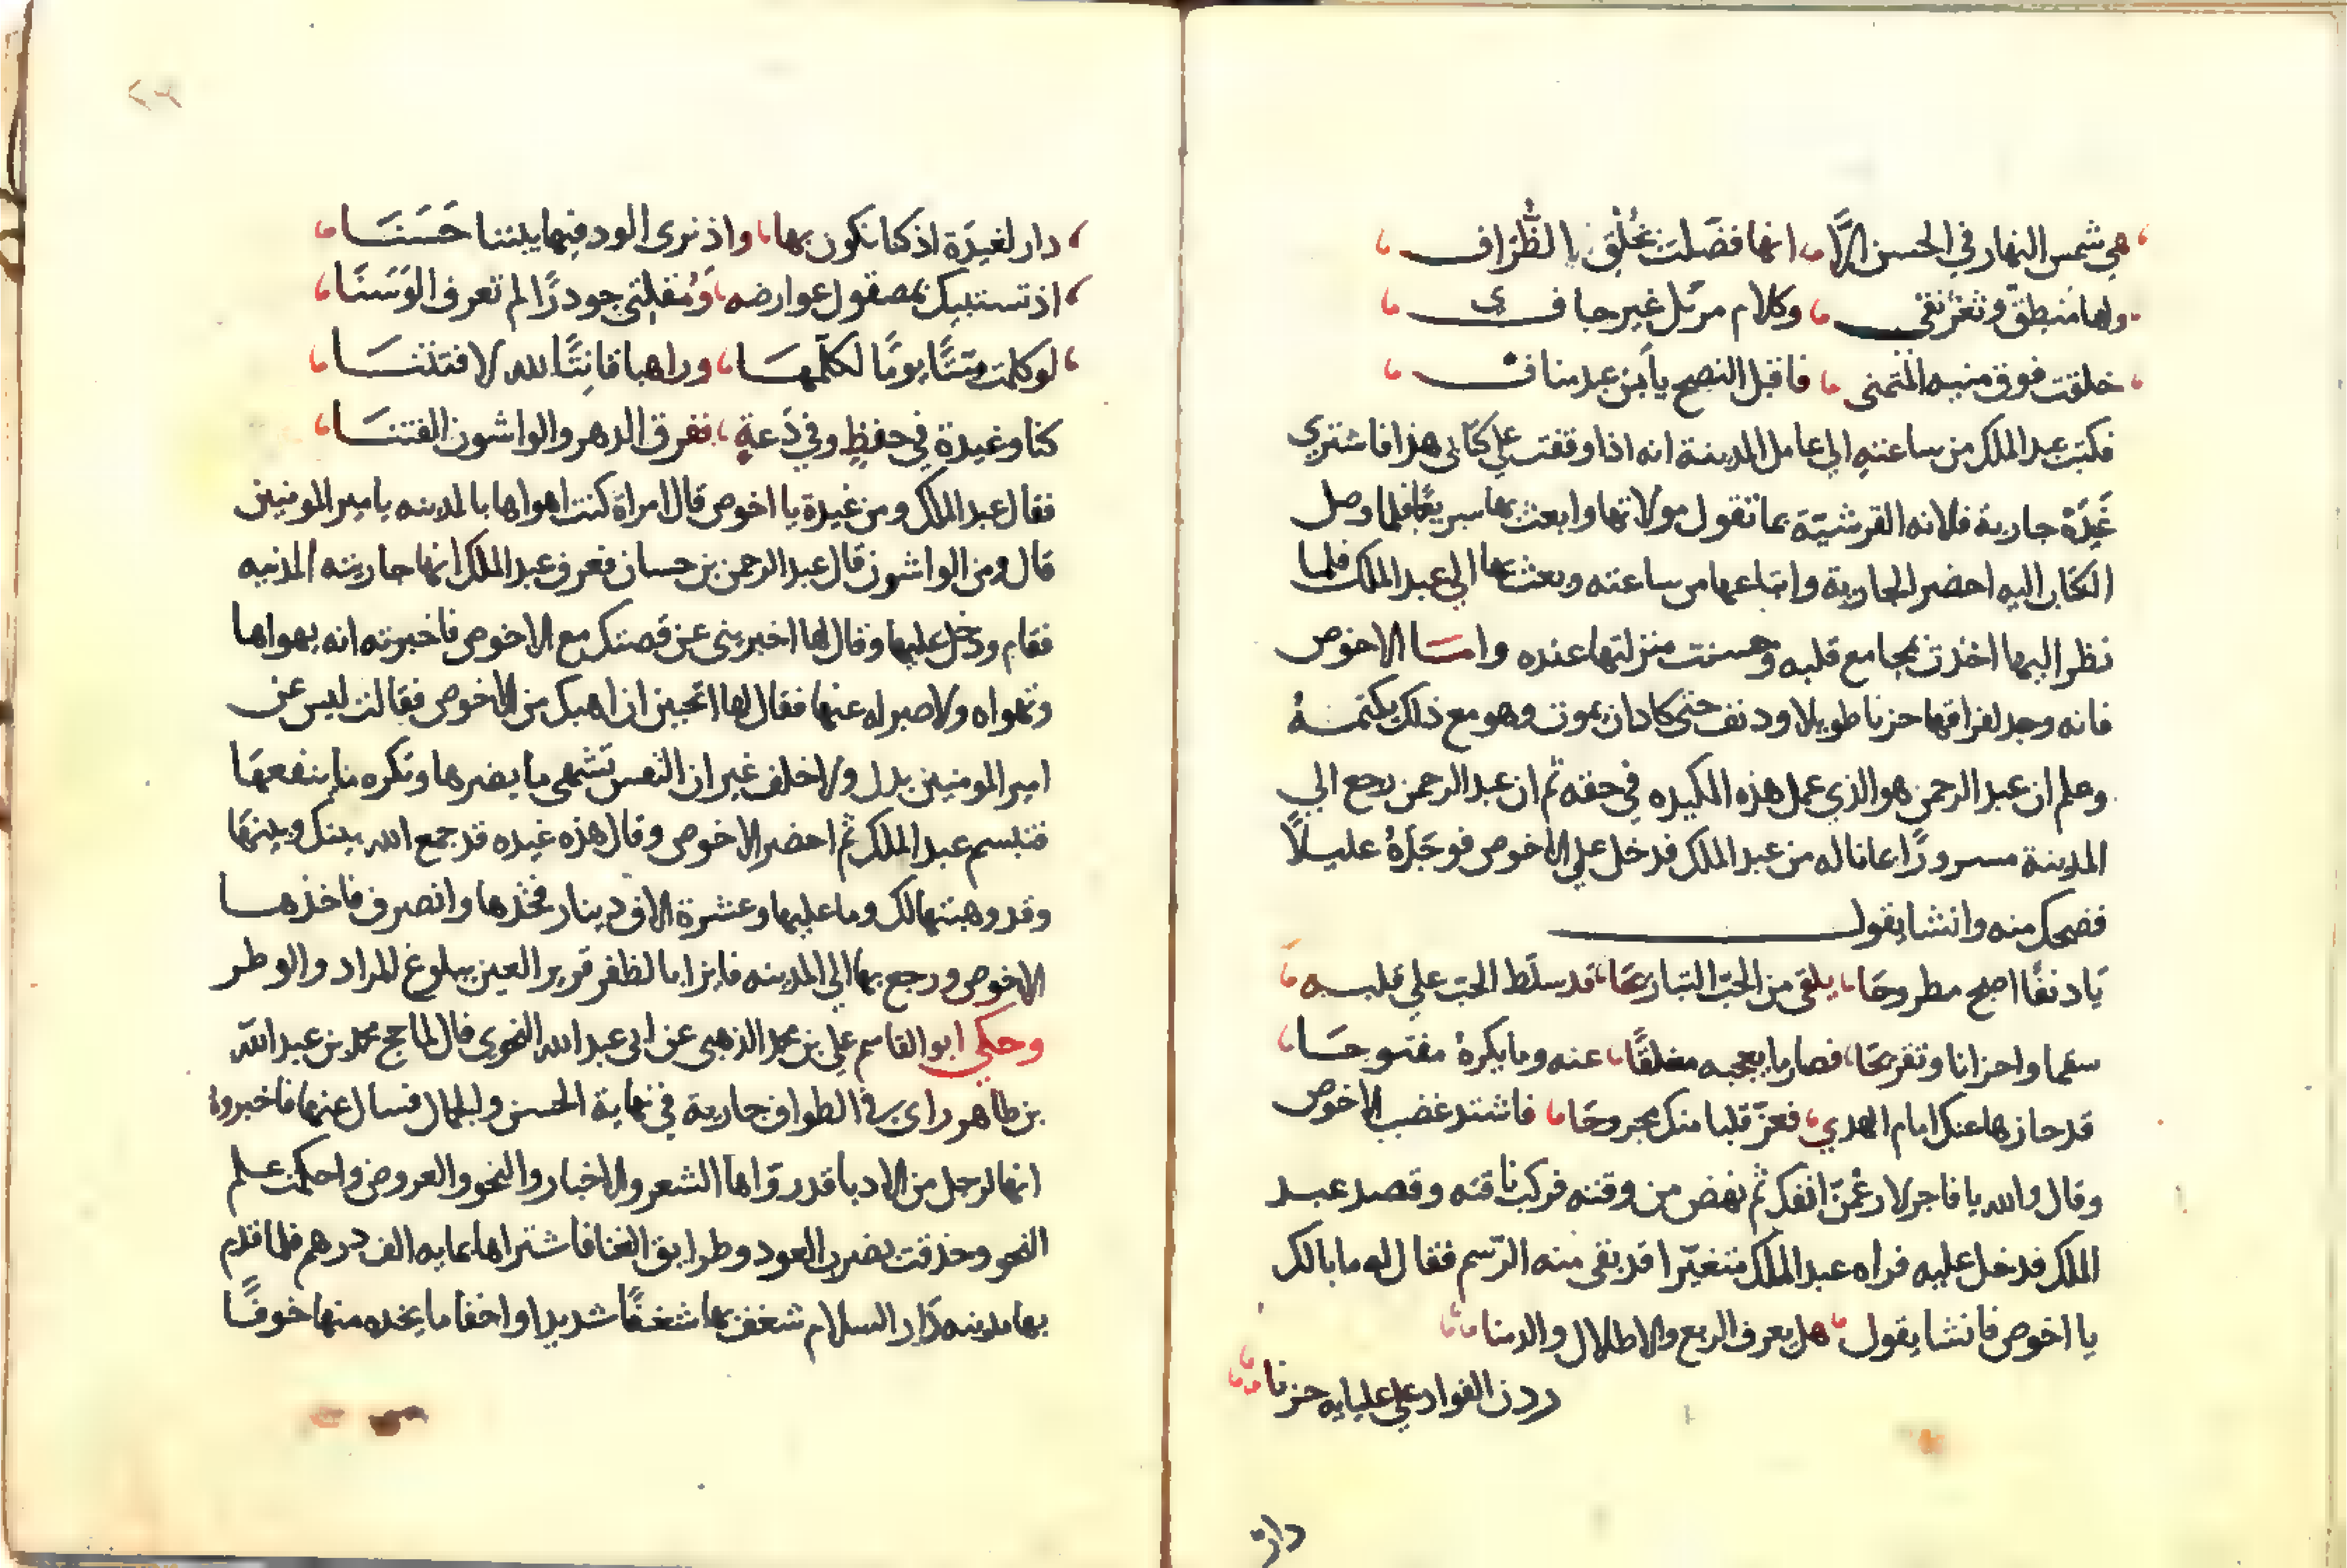 هي شمس النهار في الحسن الّا انها فضلت بخلق الظراف
ولها منطق وثغر نقي وكلام مرتل غير جافي
خلقت فوق منيه المتمنى فاقبل النصح يا بن عبد مناف
فكتب عبد الملك من ساعته الي عامل المدينة انه اذا وقفت علي كتابى هذا فاشتري
غَيدَة جارية فلانه القرشيّة بما تقول مولاتها وابعث بها سريعًا فلما وصل
الكتاب اليه احضر الجارية وابتاعها من ساعته وبعث بها الي عبد الملك فلما
نظر اليها اخذت بمجامع قلبه وحسنت منزلتها عنده وامسا الاخوص
فانه وجد لفراقها حزنا طويلا ودنف حتى كاد ان يموت وهو مع ذلك يكتمه
وعلم ان عبد الرحمن هو الذي عمل هذه المكيده في حقه ثم ان عبد الرحمن رجع الي
المدينة مسرورًا بما ناله من عبد الملك فدخل علي الاخوص فوجَدَهُ عليلًا
فضحك منه وانشا يقول
يَا دنفًا اصبح مطروحَا يلقى من الحبّ التباريحَا قد سلّط الحبّ علي قلبه
سقما واحزانا وتقريحَا فصار ما يعجبه مغلقًا عنه وما يكرهُ مفتوحا
قد حازها عنك امام الهدي فعزّ قلبا منك مجروحَا فاشتد غضب الاخوص
وقال والله يا فاجر لارغمنّ انفك ثم نهض من وقته فركب ناقته وقصد عبد
الملك فدخل عليه فراه عبد الملك متغيّرا قد بقى منه الرّسم فقال له ما بالك
يا اخوص فانشا يقول هل يعرف الربع والاطلال والدمنا
رددن الفواد علي علياءيه حزنا
دار
دار لغيدَة اذ كنا نكون بها واذ نرى الود فيها بيننا حَسَنَا
اذ تستبيك بمصقول عوارضه وَمُقلتى جودرًا لم تعرف الوَسَنَا
لو كلمت ميّتًا يومًا لكلّمهَا وراهبا قانِتًا لله لافتتنا
كنا وغيدة في حفظٍ وفي دَعةٍ ففرق الدهر والواشون الفتنَا
فقال عبد الملك ومن غيدة يا اخوص قال امراة كنت اهواها بالمدينه يا مير المومنين
قال ومن الواشون قال عبد الرحمن بن حسان فعرف عبد الملك انها جاريته المدنيه
فقام ودخل عليها وقال لها اخبرينى عن قصتك مع الاخوص فاخبرته انه يهواها
وتهواه ولا صبر له عنها فقال لها اتحبين ان اهبك من الاخوص فقالت ليس عن
امير المومنين بدل ولا خلف غير ان النفس تشتهى ما يضرها وتكره ما ينفعهَا
فتبسم عبد الملك ثم احضر الاخوص وقال هذه غيده قد جمع الله بينك وبينهَا
وقد وهبتها لك وما عليها وعشرة الاف دينار فخذها وانصرف فاخذها
الاخوص ورجع بها الي المدينه فايزا بالظفر قرير العين ببلوغ المراد والوطر
وحكي ابو القاسم علي بن محمد الذهبى عن ابى عبد الله النحوى قال لما حج محمد بن عبد الله
بن طاهر راى في الطواف جارية في نهاية الحسن والجمال فسال عنها فاخبروهُ
انها لرجل من الادبا قد روّاها الشعر والاخبار والنحو والعروض واحكمت علم
النحو وحذقت بضرب العود وطرايق الغنا فاشتراها بمايه الف درهم فلما قدم
بها مدينه دَار السلام شغف بها شغفًا شديدا واخفا ما يجده منها خوفًا